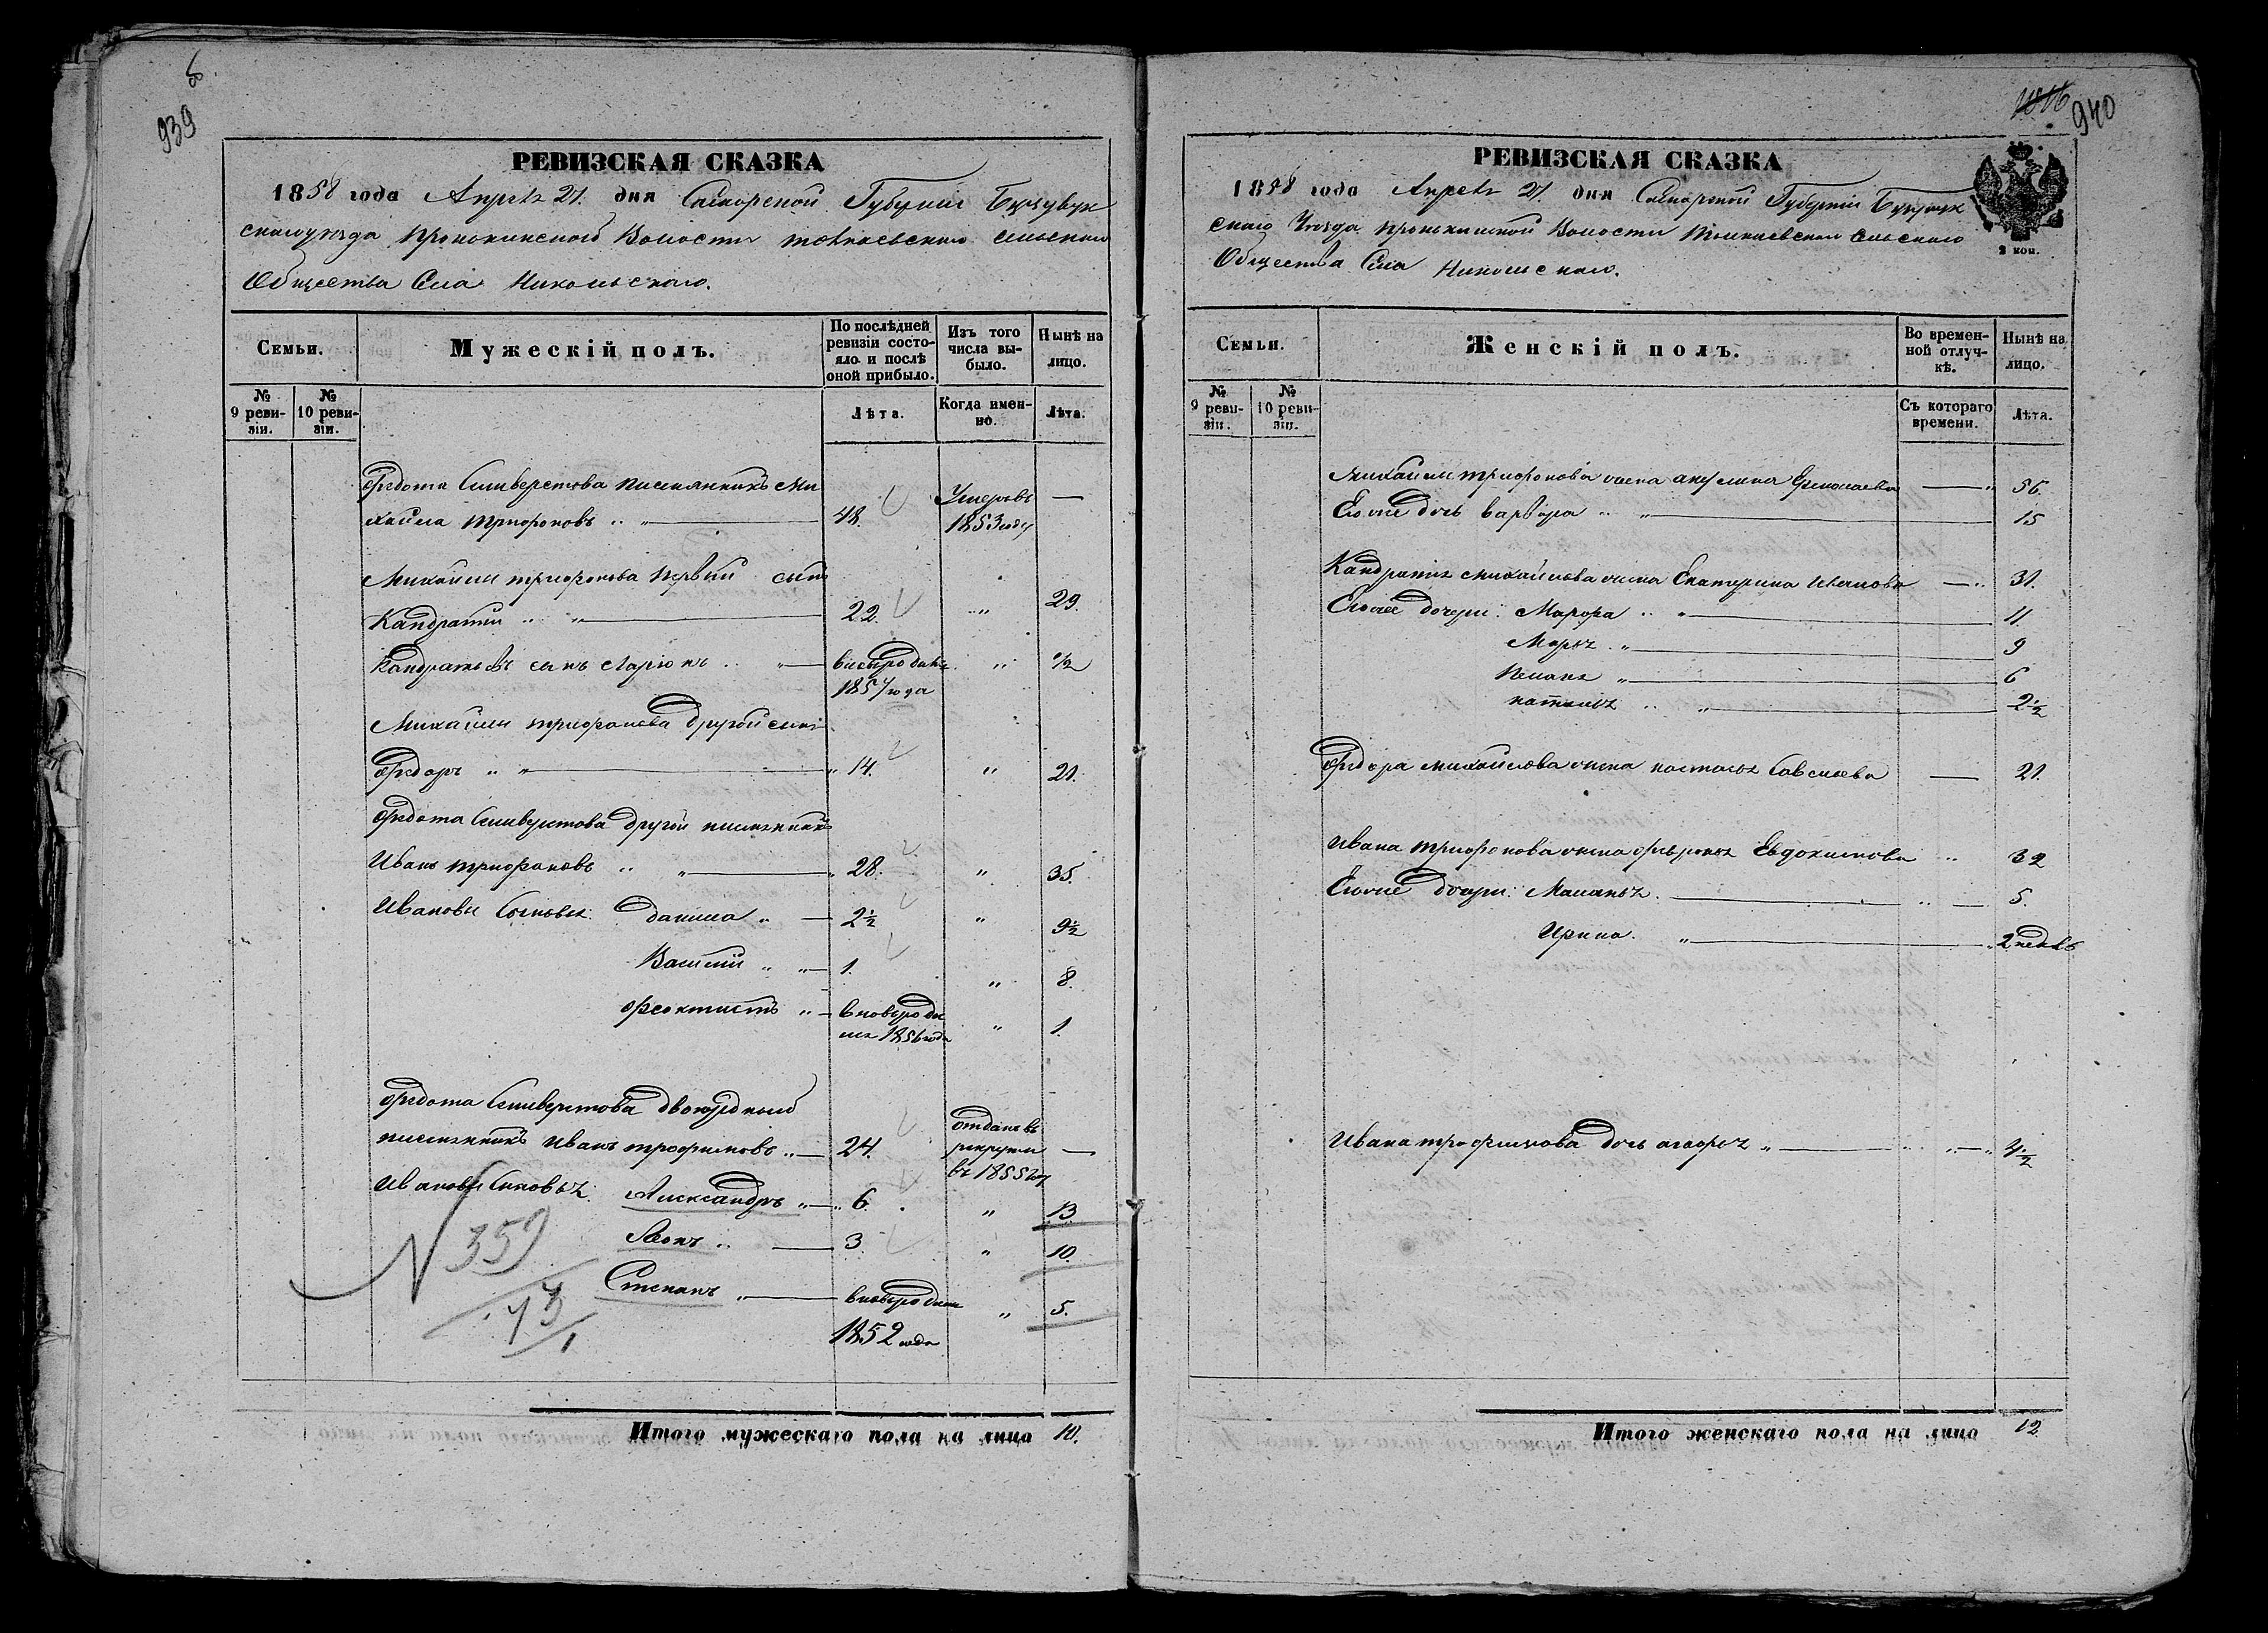 939
РЕВИЗСКАЯ СКАЗКА
1858 года Апреля 21. дня Самарской Губернии Бузулук
скаго уезда Пронькинской Волости Толкаевскаго сельскаго
Общества Села Никольскаго.
Семьи.
Мужескій полъ.
По послѣдней ревизіи состояло и послѣ оной прибыло.
Изъ того числа выбыло.
Нынѣ на лицо.
№ 9 ревизіи.
№ 10 ревизіи.
Лѣта.
Когда именно.
Лѣта.
Федота Селиверстова племянникъ Ми
хаила Трифоновъ 48. Умеръ въ 1853 году —
Михаилы Трифонова первый сынъ
Кандратий 22. 29.
Кандратьевъ сынъ Ларіонъ вновь рожденъ 1857 года ½
Михаилы Трифонова другой сынъ
Федоръ 14. 21.
Федота Селиверстова другой племянникъ
Иванъ Трифоновъ 28. 35.
Ивановы Сыновья: Данила 2½ 9½
Василий 1. 8.
Феоктистъ вновь рожденъ 1856 года 1.
Федота Селиверстова двоюродный
племянникъ Иванъ Трофимовъ 24. отданъ въ рекруты въ 1855 году —
Ивановы Сыновья: Александръ 6. 13.
Леонъ 3. 10.
Степанъ вновь рожденъ 1852 года 5.
N 359
Итого мужескаго пола на лицо 10.
940
РЕВИЗСКАЯ СКАЗКА
1858 года Апреля 21. дня Самарской Губернии Бузулук
скаго Уезда Пронькинской Волости Толкаевскаго Сельскаго
Общества Села Никольскаго.
2 коп.
Семьи.
Женскій полъ.
Во временной отлучкѣ.
Нынѣ на лицо.
№ 9 ревизіи.
№ 10 ревизіи.
Съ котораго времени.
Лѣта.
Михаилы Трифонова жена Акулина Ермолаева 56.
Его же дочь Варвара 15
Кандратья Михайлова жена Екатерина Иванова 31.
Его же дочери: Марфа 11.
Марья 9
6
Наталья 2½
Федора Михайлова жена Настасья Савельева 21.
Ивана Трифонова жена Февронья Евдокимова 32
Его же дочери: Маланья 5.
Ирина. 2 недель
Ивана Трофимова дочь Агафья 4½
Итого женскаго пола на лицо 12.